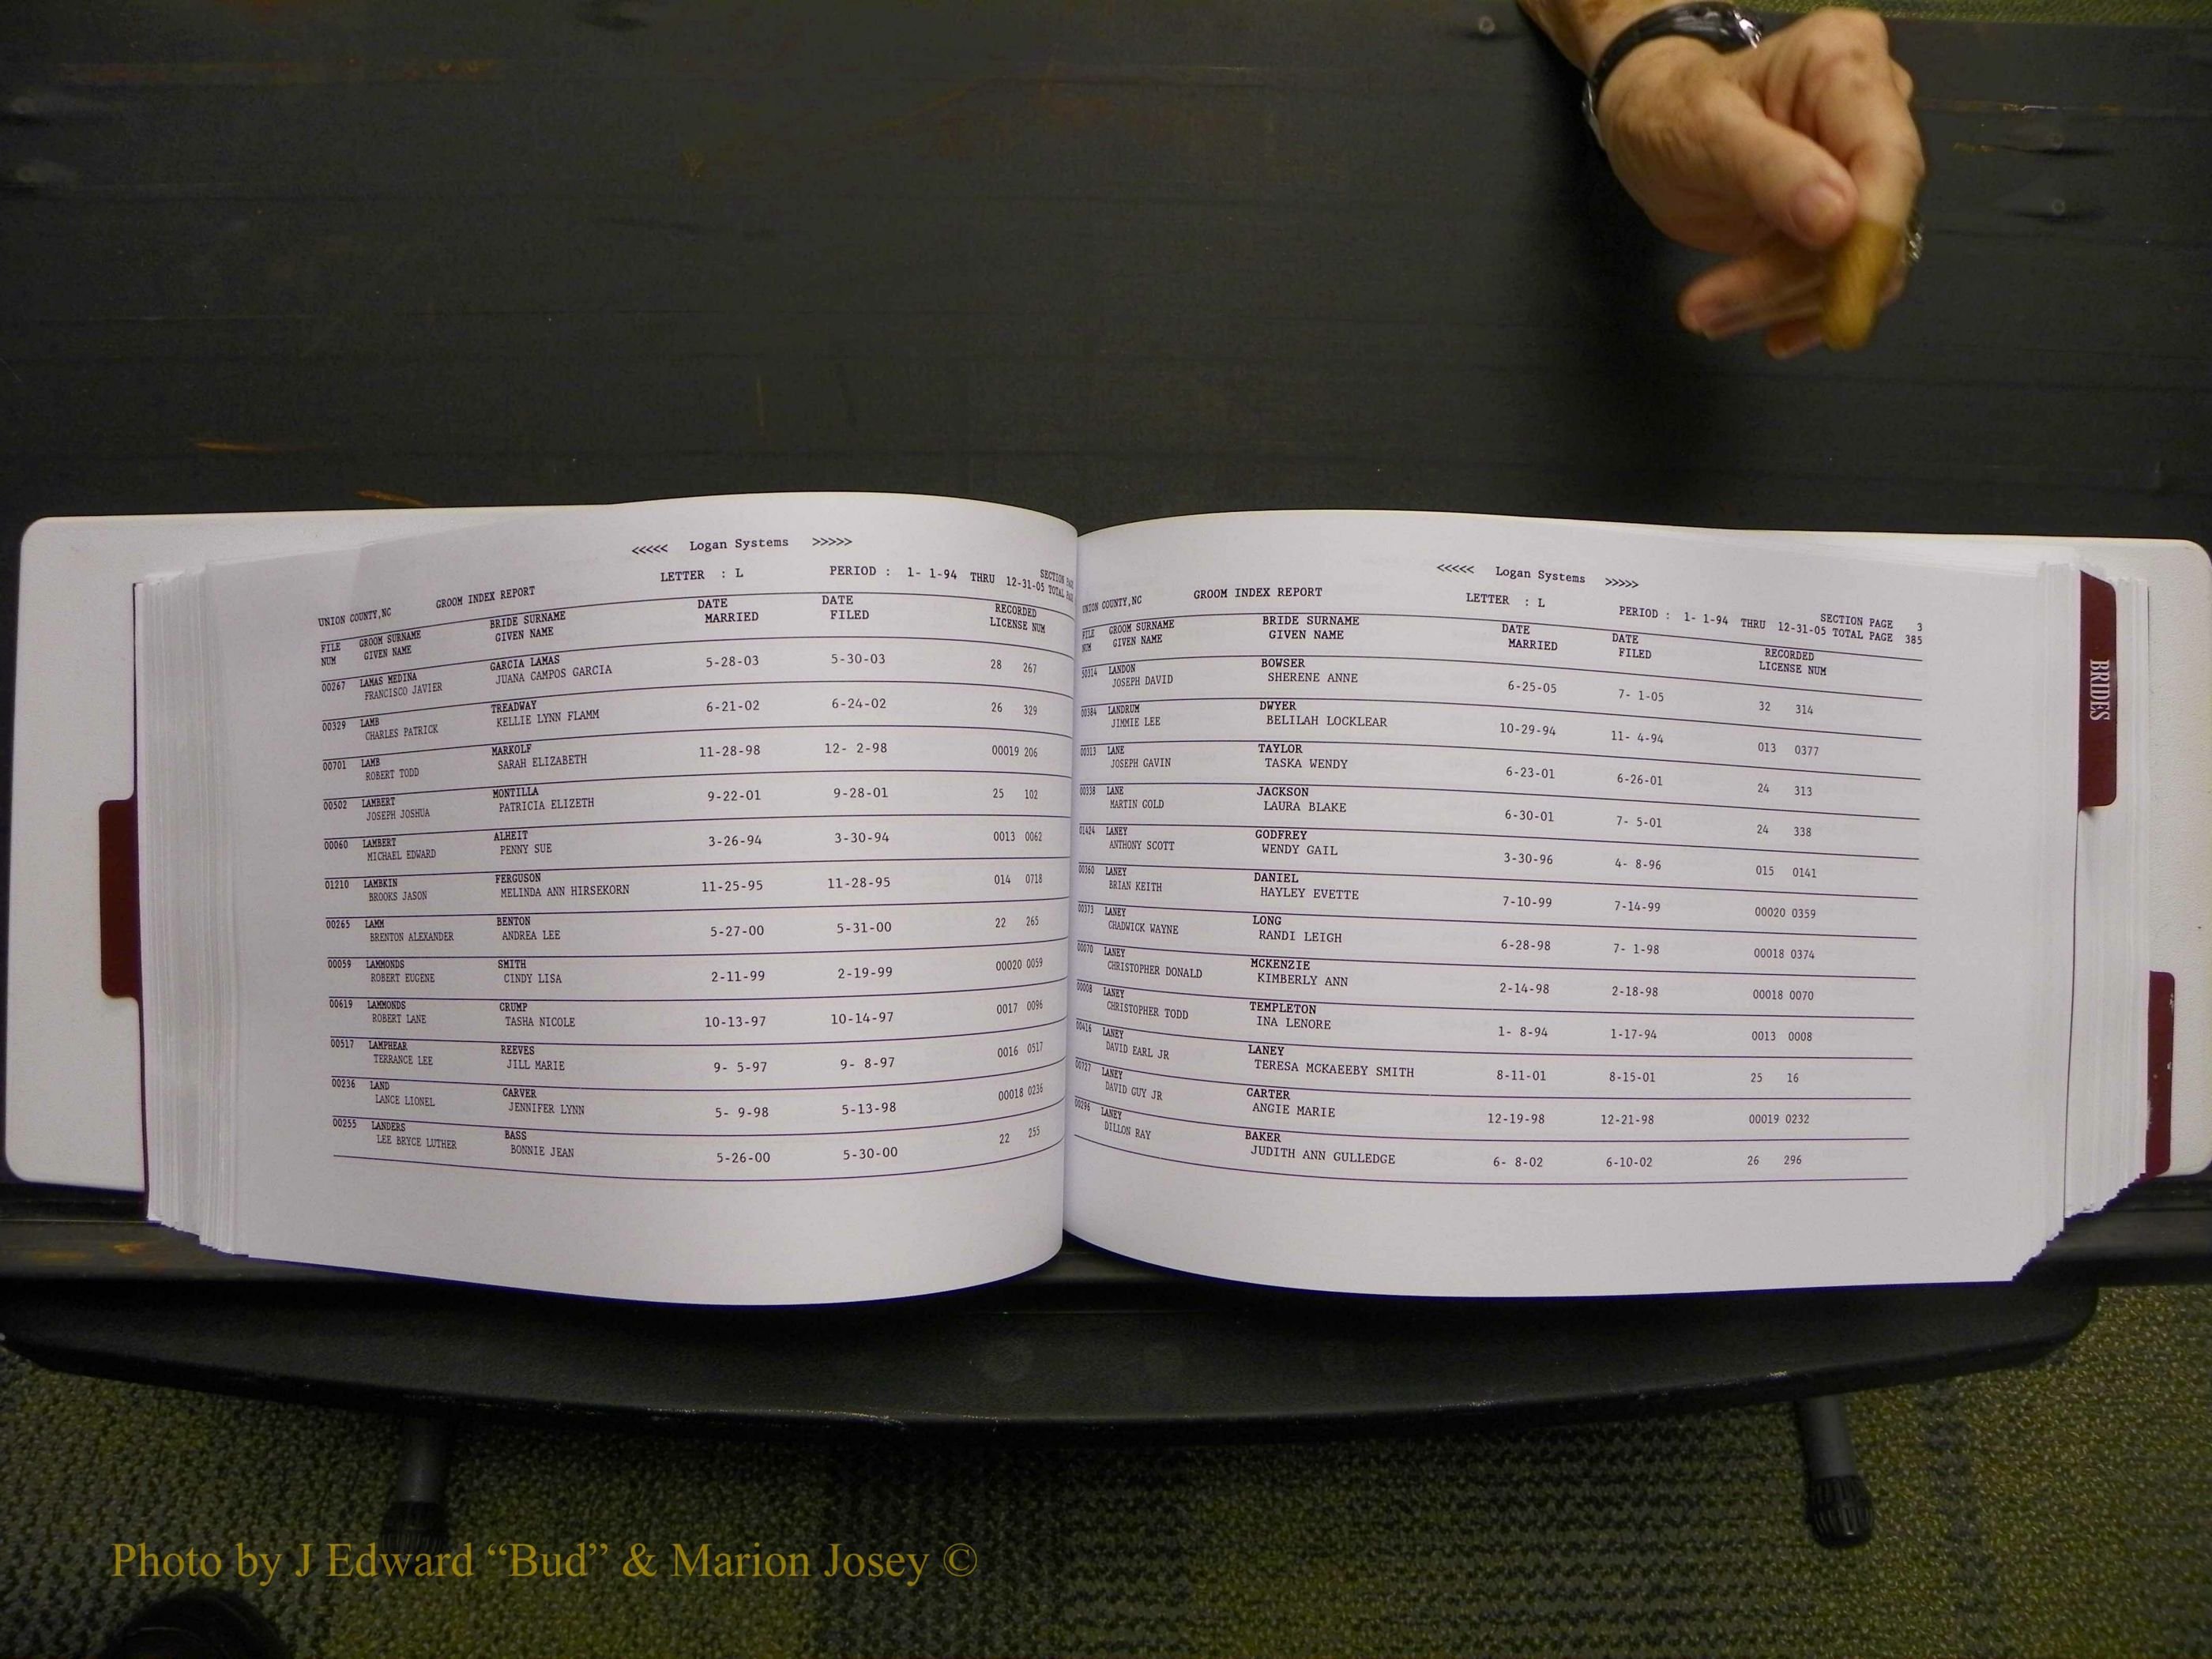 <<<<< Logan Systems >>>>>
UNION COUNTY,NC GROOM INDEX REPORT LETTER : L PERIOD : 1- 1-94 THRU 12-31-05 SECTION
TOTAL
FILE GROOM SURNAME BRIDE SURNAME DATE DATE RECORDED
NUM GIVEN NAME GIVEN NAME MARRIED FILED LICENSE NUM
00267 LAMAS MEDINA GARCIA LAMAS 5-28-03 5-30-03 28 267
FRANCISCO JAVIER JUANA CAMPOS GARCIA
00329 LAMB TREADWAY 6-21-02 6-24-02 26 329
CHARLES PATRICK KELLIE LYNN FLAMM
00701 LAMB MARKOLF 11-28-98 12- 2-98 00019 206
ROBERT TODD SARAH ELIZABETH
00502 LAMBERT MONTILLA 9-22-01 9-28-01 25 102
JOSEPH JOSHUA PATRICIA ELIZETH
00060 LAMBERT ALHEIT 3-26-94 3-30-94 0013 0062
MICHAEL EDWARD PENNY SUE
01210 LAMBKIN FERGUSON 11-25-95 11-28-95 014 0718
BROOKS JASON MELINDA ANN HIRSEKORN
00265 LAMM BENTON 5-27-00 5-31-00 22 265
BRENTON ALEXANDER ANDREA LEE
00059 LAMMONDS SMITH 2-11-99 2-19-99 00020 0059
ROBERT EUGENE CINDY LISA
00619 LAMMONDS CRUMP 10-13-97 10-14-97 0017 0096
ROBERT LANE TASHA NICOLE
00517 LAMPHEAR REEVES 9- 5-97 9- 8-97 0016 0517
TERRANCE LEE JILL MARIE
00236 LAND CARVER 5- 9-98 5-13-98 00018 0236
LANCE LIONEL JENNIFER LYNN
00255 LANDERS BASS 5-26-00 5-30-00 22 255
LEE BRYCE LUTHER BONNIE JEAN
<<<<< Logan Systems >>>>>
UNION COUNTY,NC GROOM INDEX REPORT LETTER : L PERIOD : 1- 1-94 THRU 12-31-05 SECTION PAGE 3
TOTAL PAGE 385
FILE GROOM SURNAME BRIDE SURNAME DATE DATE RECORDED
NUM GIVEN NAME GIVEN NAME MARRIED FILED LICENSE NUM
50314 LANDON BOWSER 6-25-05 7- 1-05 32 314
JOSEPH DAVID SHERENE ANNE
00384 LANDRUM DWYER 10-29-94 11- 4-94 013 0377
JIMMIE LEE BELILAH LOCKLEAR
00313 LANE TAYLOR 6-23-01 6-26-01 24 313
JOSEPH GAVIN TASKA WENDY
00338 LANE JACKSON 6-30-01 7- 5-01 24 338
MARTIN GOLD LAURA BLAKE
01424 LANEY GODFREY 3-30-96 4- 8-96 015 0141
ANTHONY SCOTT WENDY GAIL
00360 LANEY DANIEL 7-10-99 7-14-99 00020 0359
BRIAN KEITH HAYLEY EVETTE
00373 LANEY LONG 6-28-98 7- 1-98 00018 0374
CHADWICK WAYNE RANDI LEIGH
00070 LANEY MCKENZIE 2-14-98 2-18-98 00018 0070
CHRISTOPHER DONALD KIMBERLY ANN
00008 LANEY TEMPLETON 1- 8-94 1-17-94 0013 0008
CHRISTOPHER TODD INA LENORE
00416 LANEY LANEY 8-11-01 8-15-01 25 16
DAVID EARL JR TERESA MCKAEEBY SMITH
00727 LANEY CARTER 12-19-98 12-21-98 00019 0232
DAVID GUY JR ANGIE MARIE
00296 LANEY BAKER 6- 8-02 6-10-02 26 296
DILLON RAY JUDITH ANN GULLEDGE
BRIDES
Photo by J Edward “Bud” & Marion Josey ©